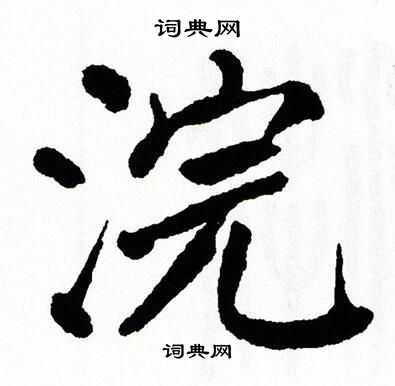 词典网
浣
词典网